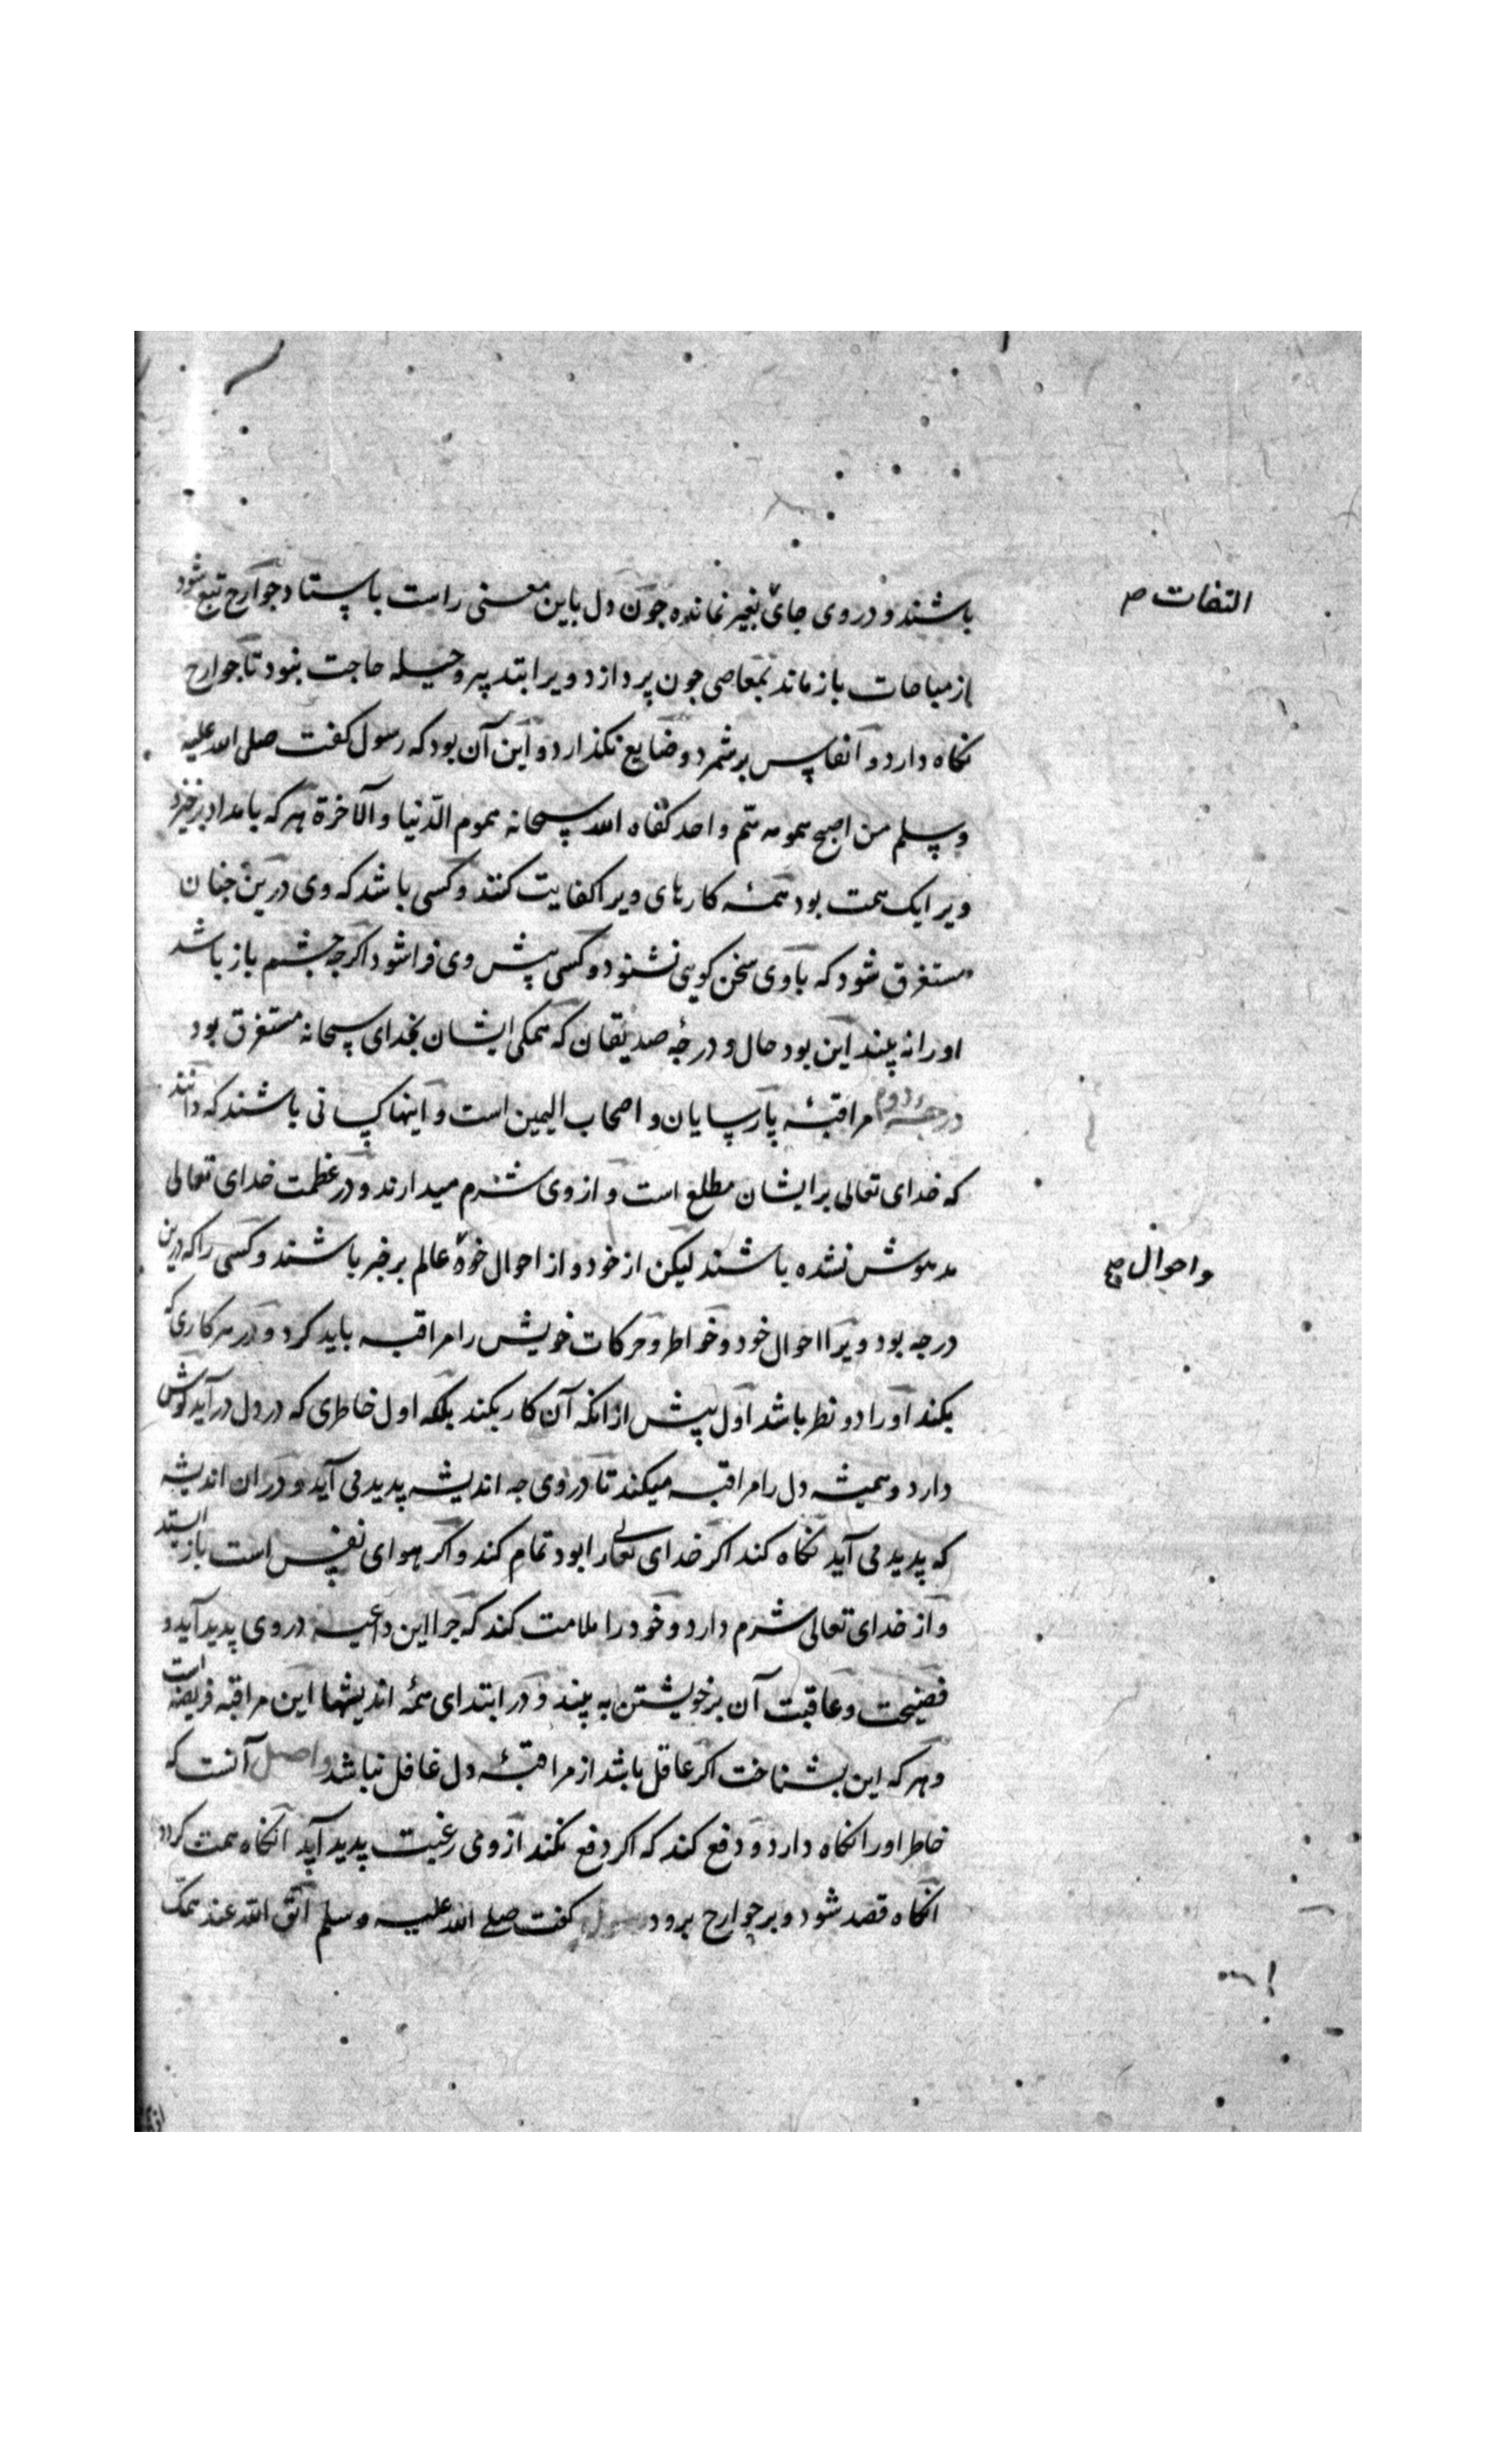 باشند و در وی جای بغیر نمانده چون دل باین معنی راست باستاد جوارح تبع شود
التفات ص
از مباحات باز ماند بمعاصی جون پردازد و ویرا بتدبیر و حیله حاجت نبود تا جوارح
نکاه دارد و انفاس برشمرد و ضایع نکذارد و این آن بود که رسول کفت صلی الله علیه
و سلم من اصبح همومه هم واحد کفاه الله سبحانه هموم الدنیا و الآخرة هر که بامداد برخیزد
ویرا یک همت بود همه کارهای ویرا کفایت کنند و کسی باشد که وی درین جنان
مستغرق شود که با وی سخن کویی نشنود و کسی پیش وی فراشود اکرجه جشم باز باشد
اورا نه بیند این بود حال و درجه صدیقان که همکی ایشان بخدای سبحانه مستغرق بود
درجه دوم مراقبهٔ پارسایان و اصحاب الیمین است و اینها کسانی باشند که دانند
که خدای تعالی بر ایشان مطلع است و از وی شرم میدارند و در عظمت خدای تعالی
مدهوش نشده باشند لیکن از خود و از احوال خود عالم برخبر باشند و کسی را که درین
واحوال صح
درجه بود ویرا احوال خود و خواطر و حرکات خویش را مراقبه باید کرد و در هر کاری که
بکند اورا دو نظر باشد اول پیش از انکه آن کار بکند بلکه اول خاطری که در دل درآید کوش
دارد و همیشه دل را مراقبه میکند تا در وی جه اندیشه پدید می آید و در ان اندیشه
که پدید می آید نکاه کند اکر خدای تعالی را بود تمام کند و اکر هوای نفس است باز ایستد
و از خدای تعالی شرم دارد و خود را ملامت کند که جرا این داعیه در وی پدید آید و
فضیحت و عاقبت آن بر خویشتن به بیند و در ابتدای همه اندیشها این مراقبه فریضه است
و هر که این بشناخت اکر عاقل باشد از مراقبهٔ دل غافل نباشد واصل آنست که
خاطر اورا نکاه دارد و دفع کند که اکر دفع نکند از وی رغبت پدید آید آنکاه همت کردد
انکاه قصد شود و بر جوارح برود رسول کفت صلی الله علیه وسلم اتق الله عند همک